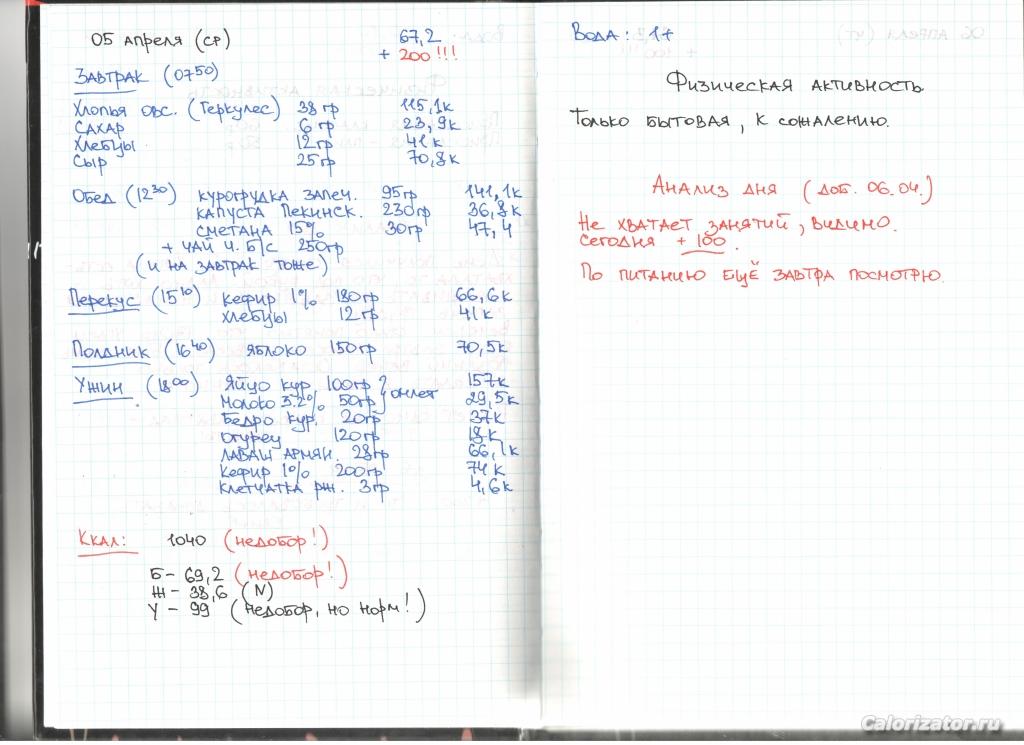 05 апреля (ср) 67,2
+ 200 !!!
Завтрак (07 50)
Хлопья овс. (Геркулес) 38гр 115,1к
Сахар 6гр 23,9к
Хлебцы 12гр 41к
Сыр 25гр 70,8к
Обед (12 30) курогрудка запеч. 95гр 141,1к
капуста пекинск. 230гр 36,8к
сметана 15% 30гр 47,4
+ чай ч. б/с 250гр
(и на завтрак тоже)
Перекус (15 10) кефир 1% 180гр 66,6к
хлебцы 12гр 41к
Полдник (16 40) яблоко 150гр 70,5к
Ужин (18 00) Яйцо кур. 100гр 157к
Молоко 3.2% 50гр омлет 29,5к
Бедро кур. 20гр 37к
Огурец 120гр 18к
Лаваш армян. 28гр 66,1к
Кефир 1% 200гр 74к
Клетчатка рж. 3гр 4,6к
Ккал: 1040 (недобор!)
Б - 69,2 (недобор!)
Ж - 38,6 (N)
У - 99 (недобор, но норм!)
Вода: 1+
Физическая активность
Только бытовая, к сожалению.
Анализ дня (доб. 06.04.)
Не хватает занятий, видимо.
Сегодня + 100.
По питанию ещё завтра посмотрю.
Calorizator.ru